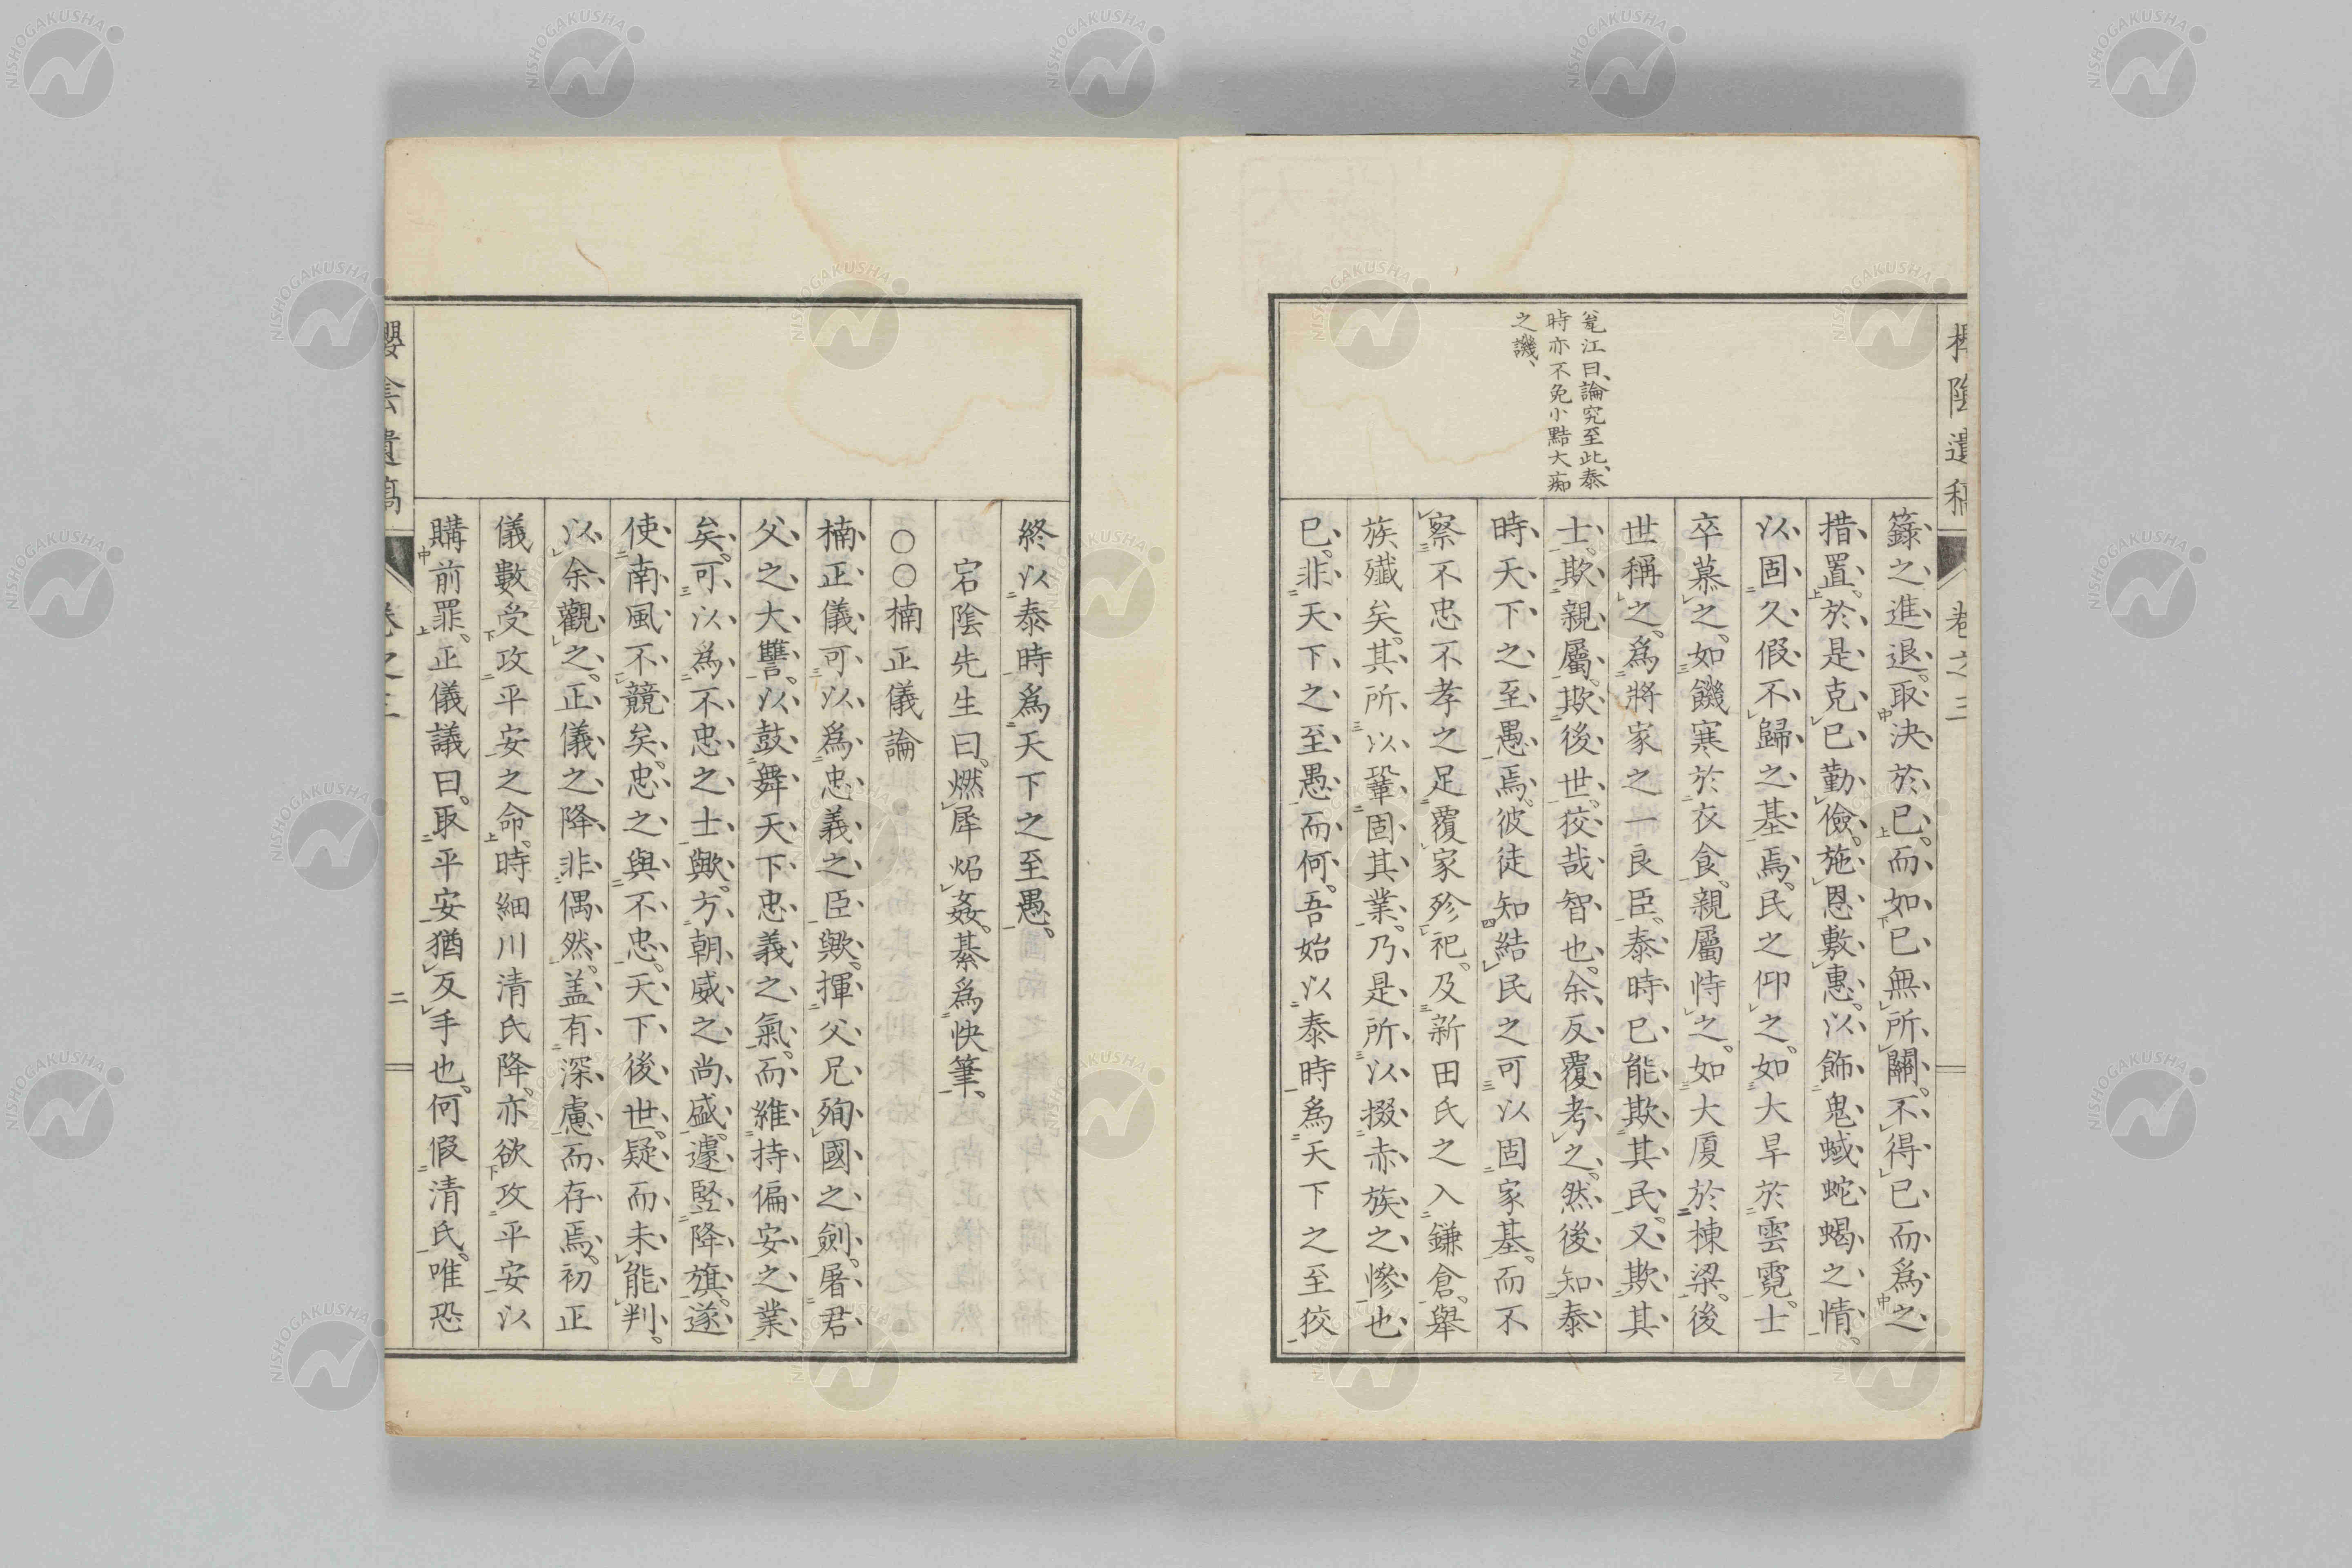 籙之進退。取決於已。而如已無所關。不得已而爲之
措置。於是克已勤儉。施恩敷惠。以飾鬼蜮蛇蝎之情。
以固久假不歸之基焉。民之仰之。如大旱於雲霓。士
卒慕之。如饑寒於衣食。親屬恃之。如大厦於棟梁。後
世稱之。爲將家之一良臣。泰時已能欺其民。又欺其
士。欺親屬。欺後世。狡哉智也。余反覆考之。然後知泰
時天下之至愚焉。彼徒知結民之可以固家基。而不
察不忠不孝之足覆家殄祀。及新田氏之入鎌倉。舉
族殲矣。其所以鞏固其業。乃是所以掇赤族之慘也
已。非天下之至愚而何。吾始以泰時爲天下之至狡
篭江曰、論究至此、泰
時亦不免小黠大痴
之譏、
終以泰時爲天下之至愚。
宕陰先生曰。燃犀炤姦。綦爲快筆。
○○楠正儀論
楠正儀可以爲忠義之臣歟。揮父兄殉國之劍。屠君
父之大讐。以鼓舞天下忠義之氣。而維持偏安之業
矣。可以爲不忠之士歟。方朝威之尚盛。遽竪降旗。遂
使南風不競矣。忠之與不忠。天下後世。疑而未能判。
以余觀之。正儀之降非偶然。盖有深慮而存焉。初正
儀數受攻平安之命。時細川清氏降。亦欲攻平安以
購前罪。正儀議曰。取平安猶反手也。何假清氏。唯恐
櫻陰遺稿
卷之三
二